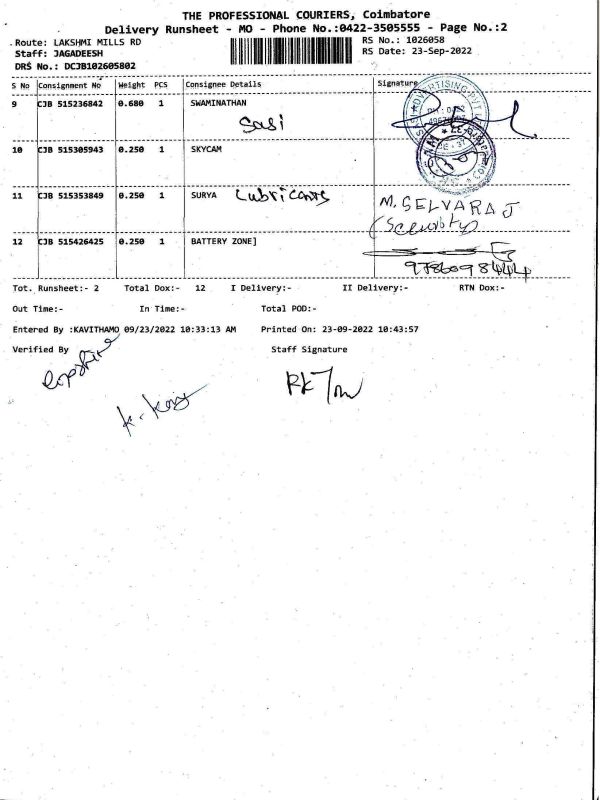 THE PROFESSIONAL COURIERS, Coimbatore
Delivery Runsheet - MO - Phone No.:0422-3505555 - Page No.:2
Route: LAKSHMI MILLS RD RS No.: 1026058
Staff: JAGADEESH RS Date: 23-Sep-2022
DRS No.: DCJB102605802
S No Consignment No Weight PCS Consignee Details Signature
9 CJB 515236842 0.680 1 SWAMINATHAN
Sasi
10 CJB 515305943 0.250 1 SKYCAM
11 CJB 515353849 0.250 1 SURYA Lubricants
M. SELVARAJ
(Security)
12 CJB 515426425 0.250 1 BATTERY ZONE]
9786098444
Tot. Runsheet:- 2 Total Dox:- 12 I Delivery:- II Delivery:- RTN Dox:-
Out Time:- In Time:- Total POD:-
Entered By :KAVITHAMO 09/23/2022 10:33:13 AM Printed On: 23-09-2022 10:43:57
Verified By Staff Signature